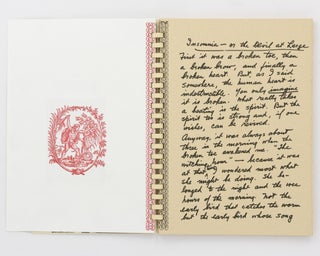 Insomnia – or the Devil at Large
First it was a broken toe, then
a broken brow, and finally a
broken heart. But, as I said
somewhere, the human heart is
indestructible. You only imagine
it is broken. What really takes
a beating is the spirit. But the
spirit too is strong and, if one
wishes, can be revived.
Anyway, it was always about
three in the morning when the
broken toe awakened me. "The
witching hour" – because it was
at that hr. I wondered most what
she might be doing. She be-
longed to the night and the wee
hours of the morning. Not the
early bird that catches the worm
but the early bird whose song